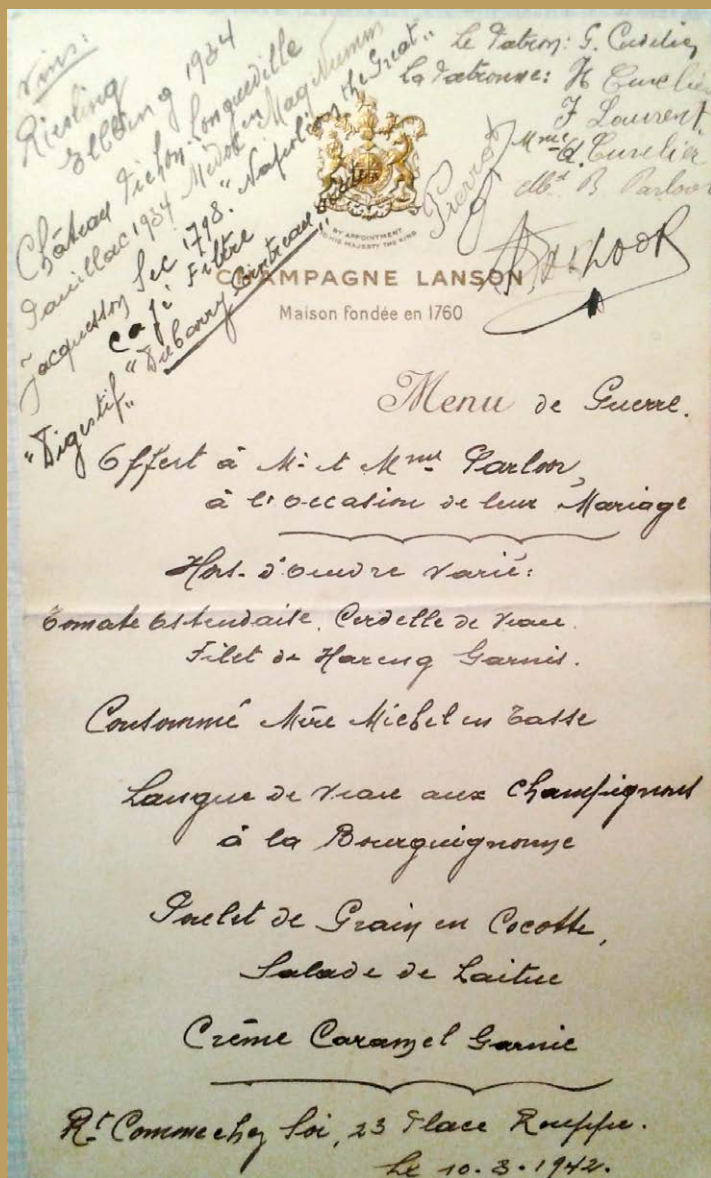 Vins
Riesling
Ellbing 1934
Château Pichon-Longueville
Pauillac 1934 Médoc en Mag Numm
Jacquesson Sec 1798. "Napoléon the Great"
Café Filtre
"Digestif" "Dubarry Cointreau
Le Patron: G. Cuvelier
La Patronne: H Cuvelier
F Laurent
Mme G. Cuvelier
B. Parloor
Pierrot
BY APPOINTMENT
TO HIS MAJESTY THE KING
CHAMPAGNE LANSON
Maison fondée en 1760
Menu de Guerre.
Offert à Mr et Mme Parloor,
à l'occasion de leur Mariage
Hors-d'oeudre Varié:
Tomate Ostendaise, Cerdelle de Veau.
Filet de Hareng Garnis.
Consommé Mère Michel en Tasse
Langue de Veau aux Champignons
à la Bourguignonne
Poulet de Grain en Cocotte,
Salade de Laitue
Crême Caramel Garnie
Rt Comme chez Soi, 23 Place Rouppe.
Le 10.3.1942.